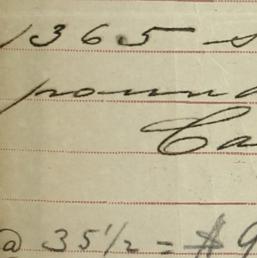 1365 s
poun
Ca
@ 35 1/2 = $ 9